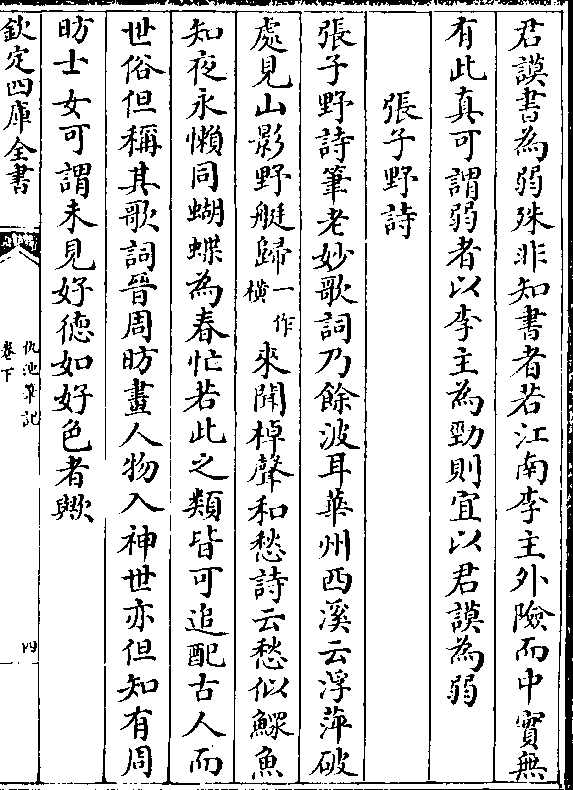 君謨書為弱殊非知書者若江南李主外險而中實無
有此真可謂弱者以李主為勁則宜以君謨為弱
張子野詩
張子野詩筆老妙歌詞乃餘波耳華州西溪云浮萍破
處見山影野艇歸一作橫來聞棹聲和愁詩云愁似鰥魚
知夜永懶同蝴蝶為春忙若此之類皆可追配古人而
世俗但稱其歌詞晉周昉畫人物入神世亦但知有周
昉士女可謂未見好德如好色者歟
欽定四庫全書
仇池筆記
卷下
四